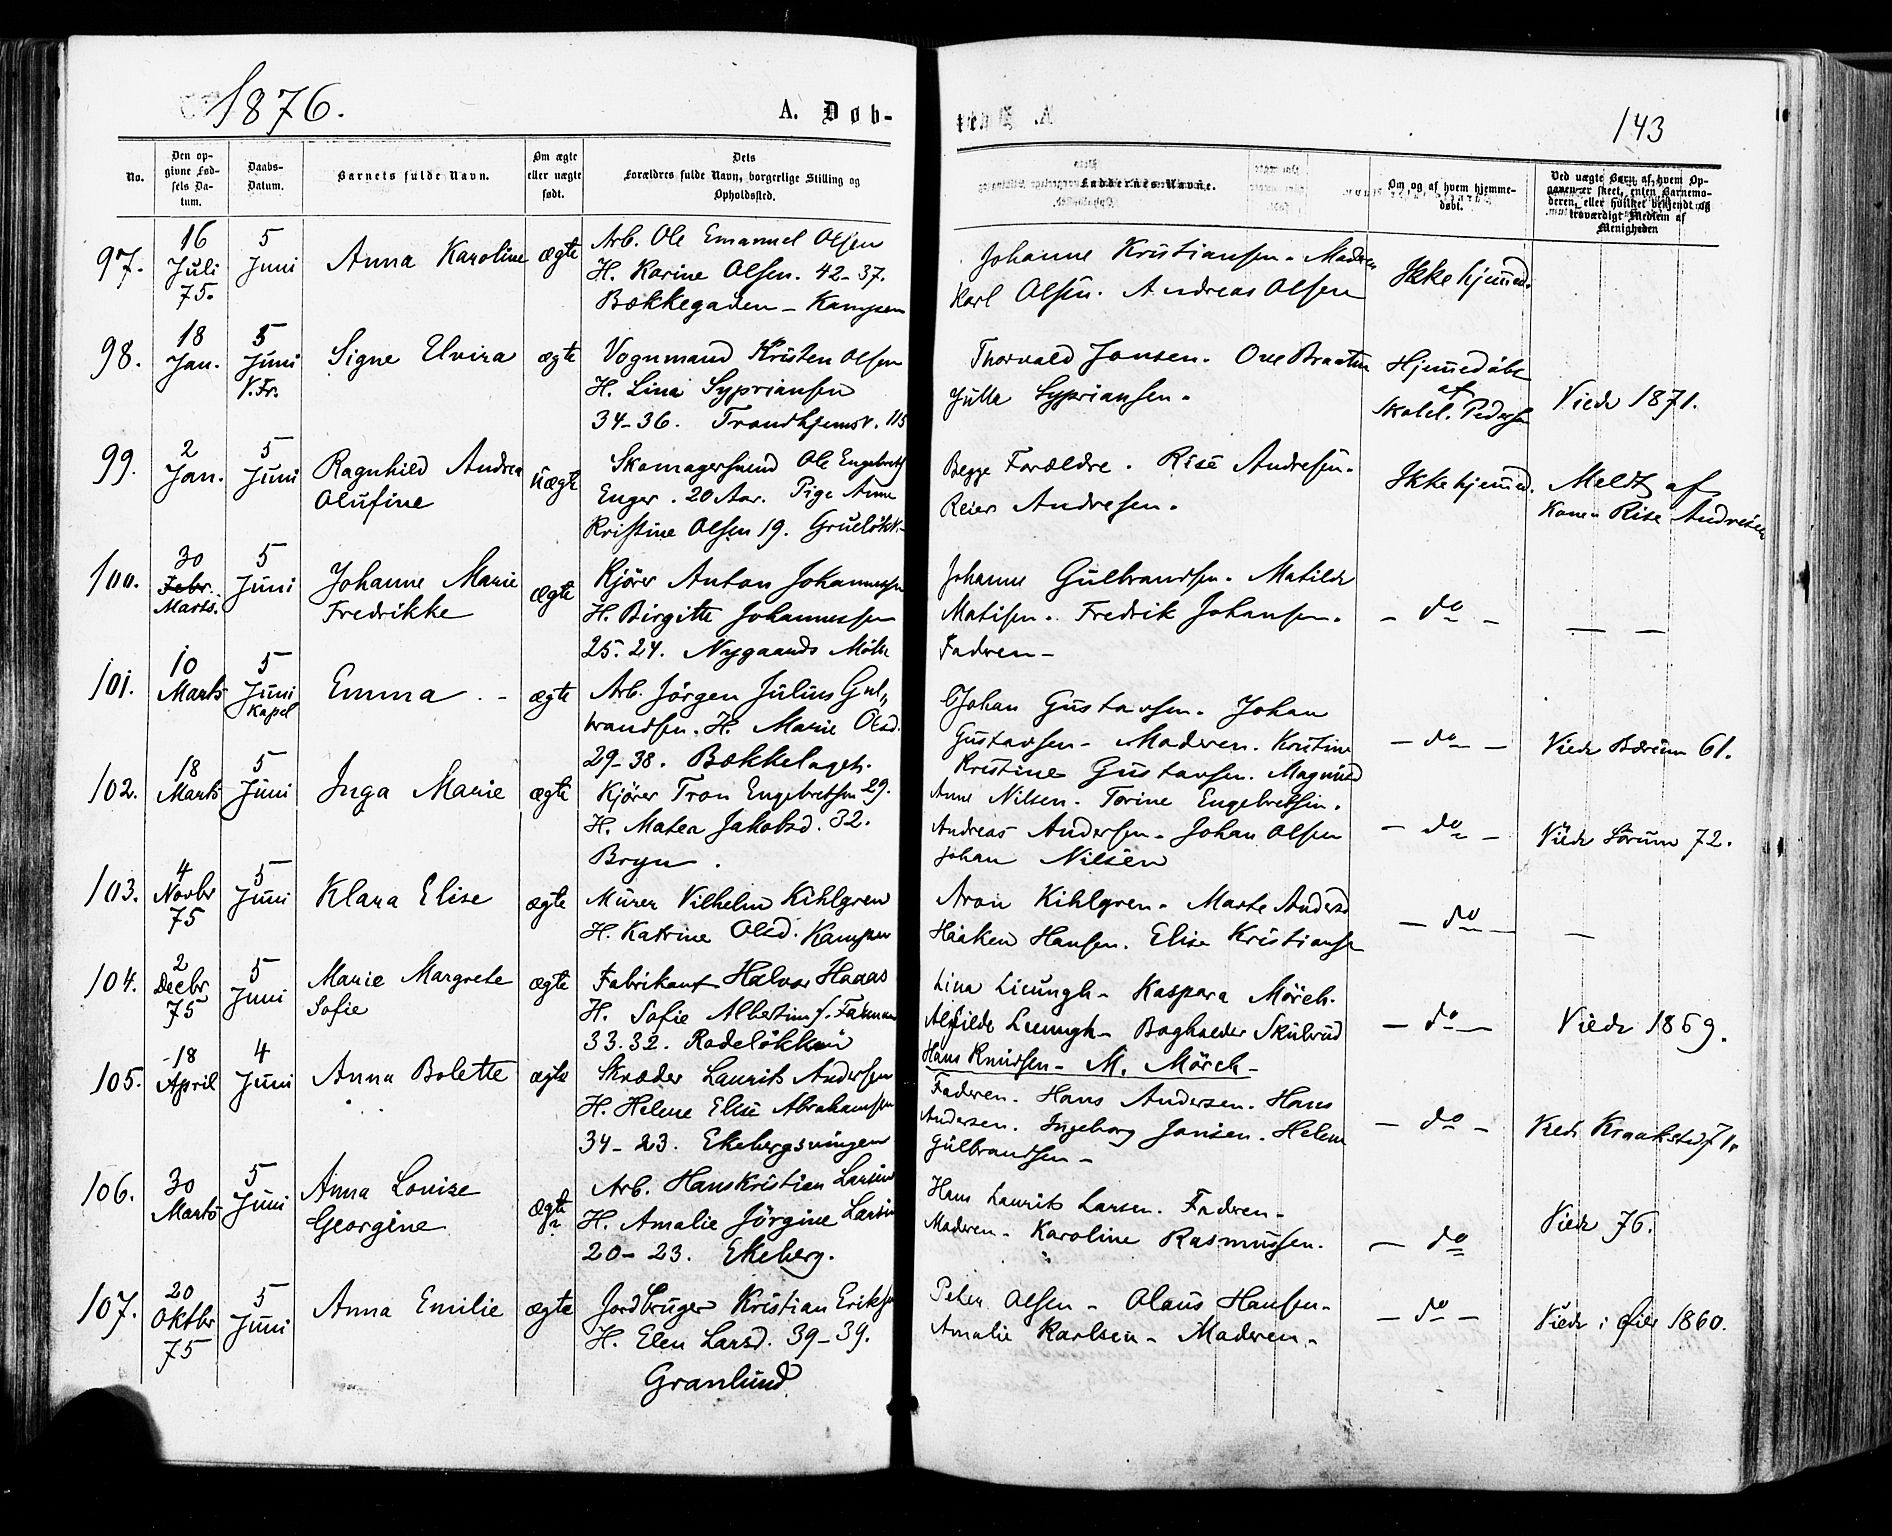 1876.
A. Døb-
143
No.
Den op-
givne Fød-
sels Da-
tum.
Daabs-
Datum.
Barnets fulde Navn.
Om ægte
eller uægte
født.
Dets
Forældres fulde Navn, borgerlige Stilling og
Opholdssted.
Faddernes Navne.
Om og af hvem hjemme-
døbt.
Ved uægte Barn, af hvem Op-
gaven er skeet, enten Barnemo-
deren, eller hvilket bekjendt og
troværdigt Medlem af
Menigheden
97.
16
Juli
75.
5
Juni
Anna Karoline
ægte
Arb. Ole Emanuel Olsen
H. Karine Olsen. 42-37.
Bækkegaden - Kampen
Johanne Kristiansen. Moderen
Karl Olsen. Andreas Olsen
Ikke hjemmed.
98.
18
Jan.
5
Juni
V. Fr.
Signe Elvira
ægte
Vognmand Kristen Olsen
H. Lina Sypriansen
34-36. Trondhjemsv. 115
Thorvald Jonsen. Ove Braaten
Julla Sypriansen.
Hjemmedøbt
af
Skolel. Pedersen
Viede 1871.
99.
2
Jan.
5
Juni
Ragnhild Andrea
Olufine
uægte
Skomagersvend Ole Engebrets
Enger. 20 Aar. Pige Anne
Kristine Olsen 19. Grueløkk.
Begge Forældre. Rise Andresen.
Reier Andresen.
Ikke hjemmed.
Meldt af
Konen Rise Andresen
100.
30
Febr.
Marts.
5
Juni
Johanne Marie
Fredrikke
ægte
Kjører Anton Johannessen
H. Birgitte Johannessen
25. 24. Nygaards Mølle
Johanne Gulbrandsen. Matilde
Matisen. Fredrik Johansen.
Fadren -
- do -
— —
101.
10
Marts
5
Juni
Kapel
Emma . -
ægte
Arb. Jörgen Julius Gul„
brandsen. H. Marie Olsd.
29-38. Bækkelaget.
Johan Gustavsen. Johan
Gustavsen - Moderen. Kristine
Kristine Gustavsen. Magnus
- do -
Viede Bærum 61.
102.
18
Marts
5
Juni
Inga Marie
ægte
Kjører Tron Engebretsen 29.
H. Matea Jakobsd. 32.
Bryn.
Anne Nilsen. Torine Engebretsen.
Andreas Andersen. Johan Olsen
Johan Nilsen
- do -
Viede Sørum 72.
103.
4
Novbr
75
5
Juni
Klara Elise
ægte
Murer Vilhelm Kihlgren
H. Katrine Olsd. Kampen
Aron Kihlgren. Marte Andersd
Haaken Hansen. Elise Kristianse
- do -
—
104.
2
Decbr
75
5
Juni
Marie Margrete
Sofie
ægte
Fabrikant Halvor Haaas
H. Sofie Albertine f.
33. 32. Rodeløkken
Lina Lieungh - Kaspara Mörch.
Lieungh - Boghalder Skulrud
Hans Knudsen - M. Mörch -
- do -
Viede 1869.
105.
18
April
4
Juni
Anna Bolette
ægte
Skræder Laurits Andersen
H. Helene Elise Abrahamsen
34-23. Ekebergsvingen
Faderen. Hans Andersen. Hans
Andersen. Ingeborg Jansen. Helene
Gulbrandsen -
- do -
Viede Kraakstad 71.
106.
30
Marts
5
Juni
Anna Louise
Georgine
ægte
Arb. Hans Kristian Larsen
H. Amalie Jörgine Larsen
20-23. Ekeberg.
Hans Laurits Larsen. Faderen -
Moderen - Karoline Rasmussen.
- do
Viede 76.
107.
20
Oktbr
75
5
Juni
Anna Emilie
ægte
Jordbruger Kristian Eriksen
H. Elen Larsd. 39-39.
Granlund.
Peter Olsen - Olaus Hansen -
Amalie Karlsen - Moderen -
- do -
Viede i Øier 1860.